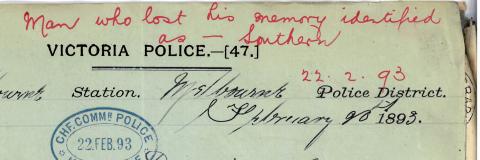 Man who lost his memory identified
as — Southern
VICTORIA POLICE.—[47.]
22. 2. 93
Station. Melbourne Police District.
February 1893.
CHF. COMMR. POLICE
22.FEB.93